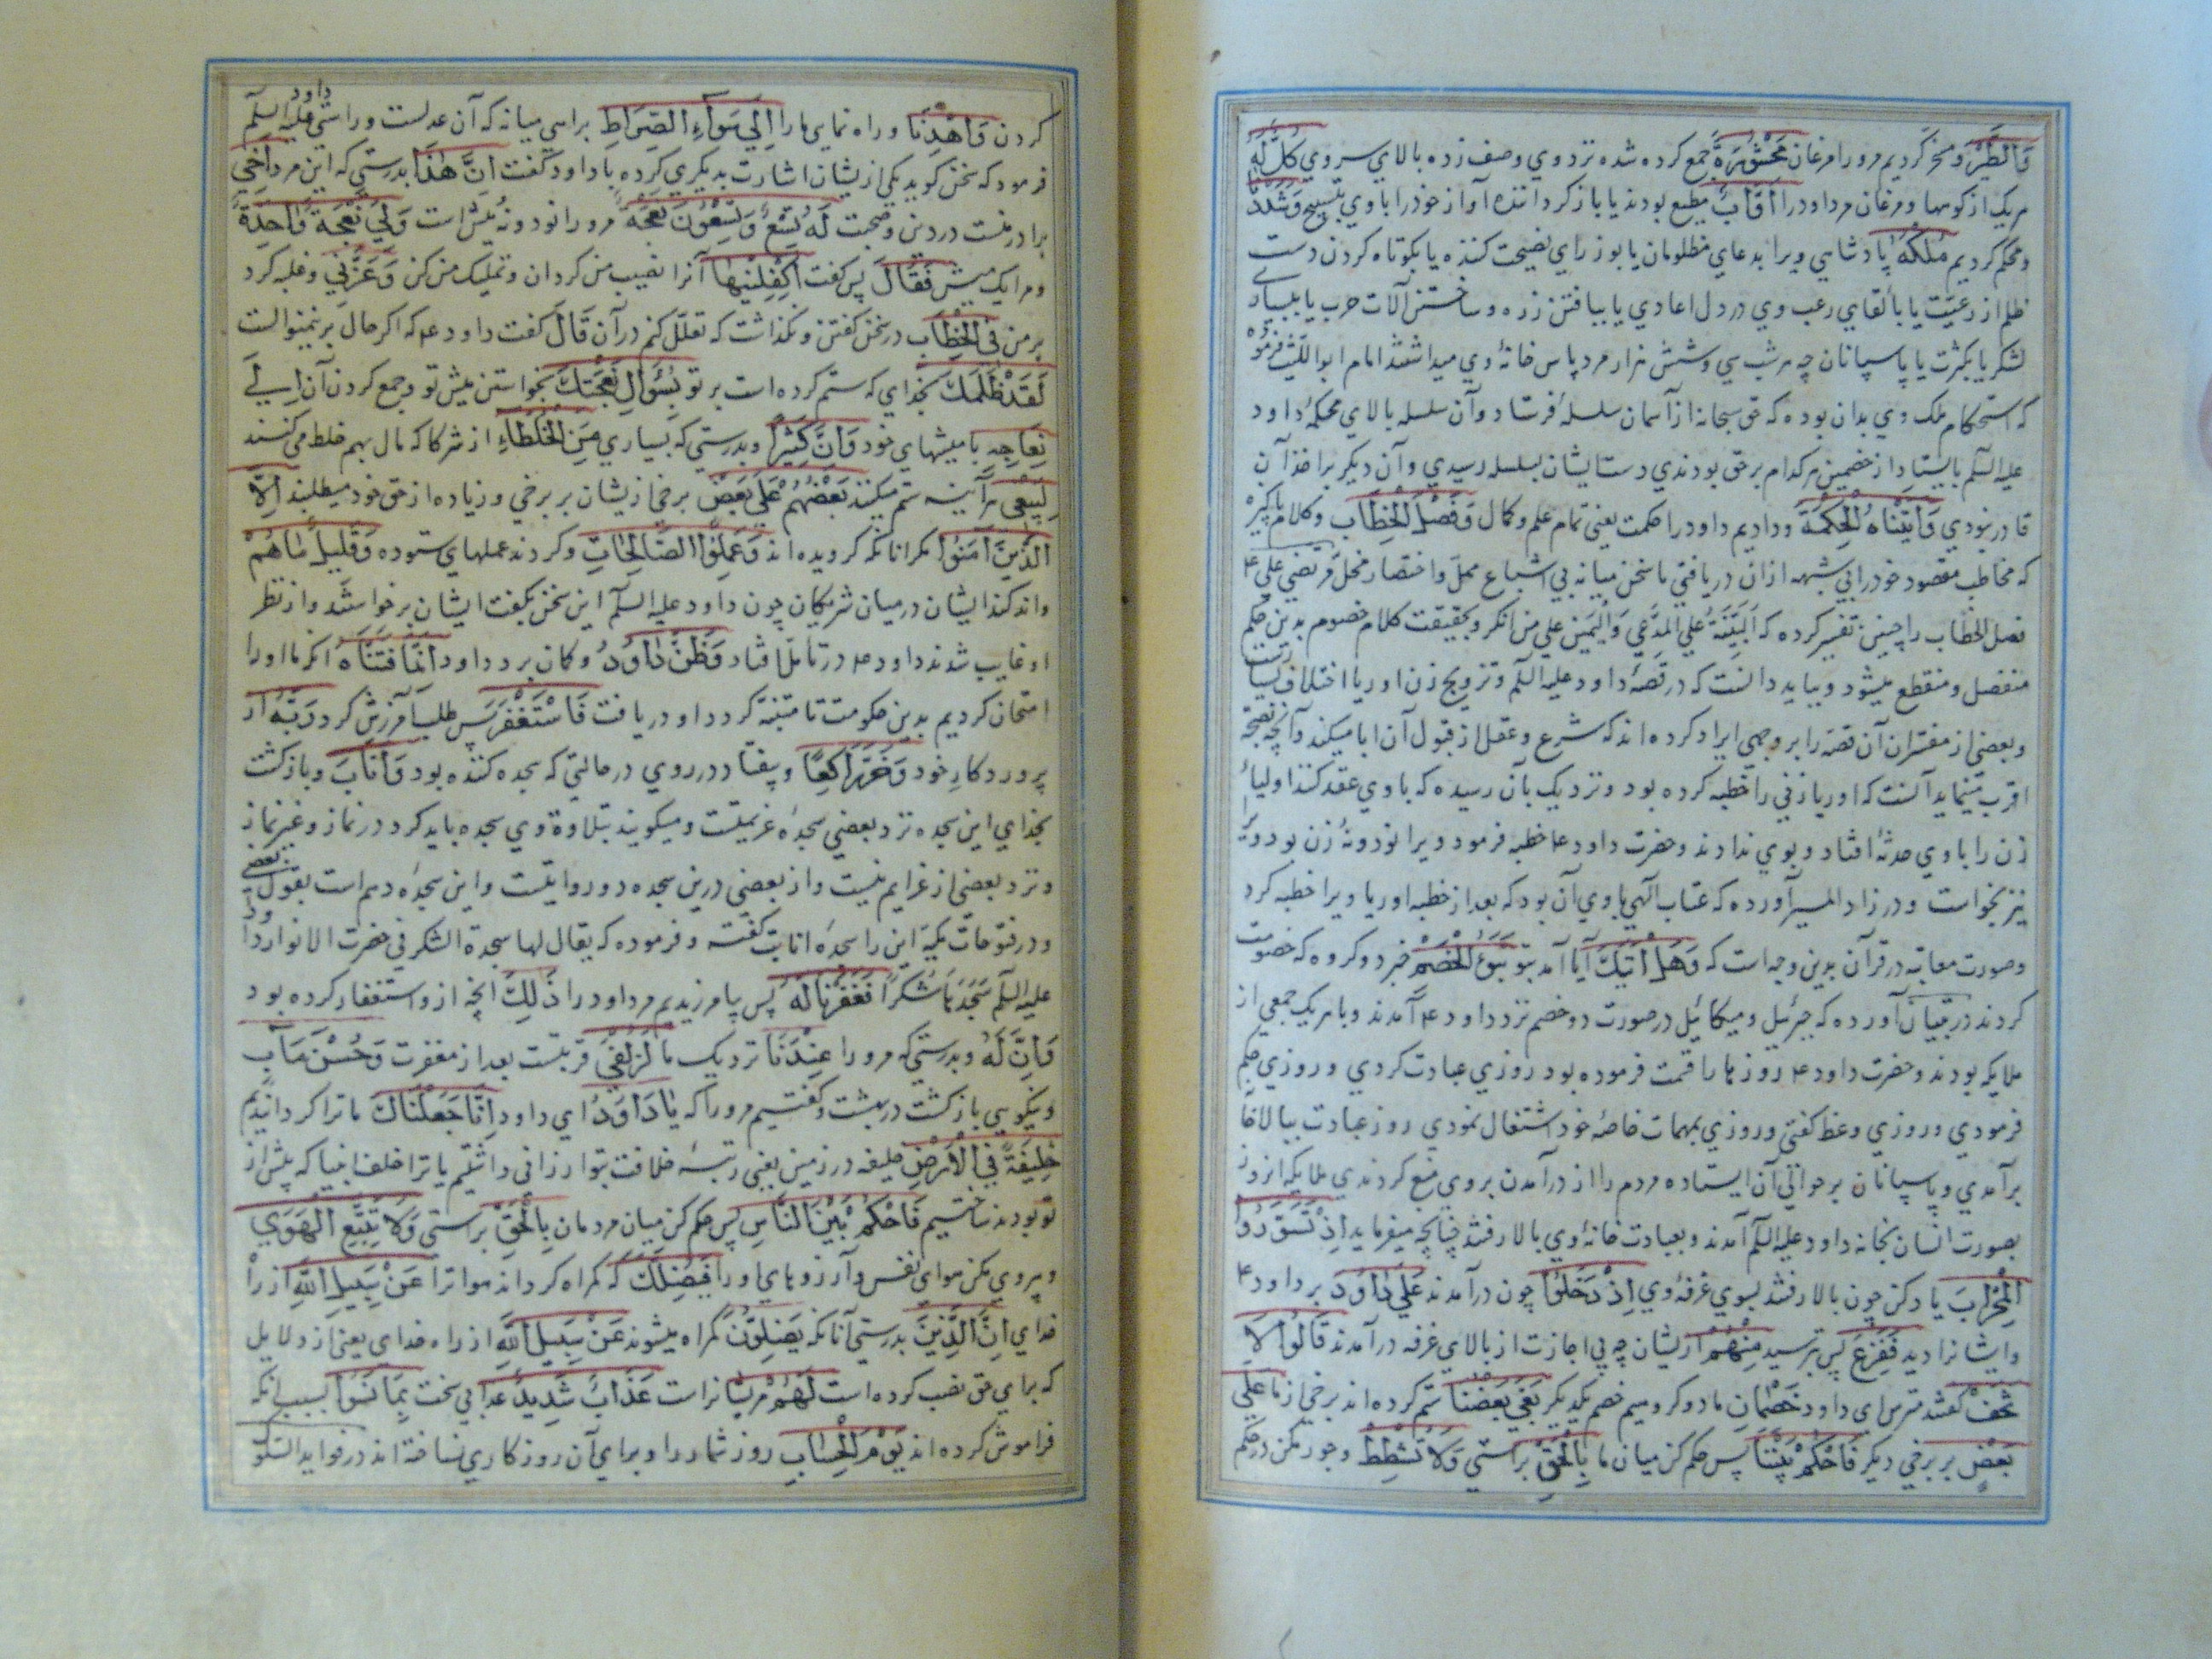 وَالطَّيْرَ و مسخر کردیم مرورا مرغان مَحْشُورَةً جمع کرده شده نزد وی وصف زده بالای سر وی كُلٌّ لَهُ
هریک از کوهها و مرغان مر داود را أَوَّابٌ مطیع بودند یا باز کرداننده آواز خود را با وی بتسبیح وَشَدَدْنَا
و محکم کردیم مُلْكَهُ پادشاهی ویرا بدعای مظلومان یا بوزرای نصیحت کننده یا بکوتاه کردن دست
ظلم از رعیت یا بالقای رعب وی در دل اعادی یا ببافتن زره و ساختن آلات حرب یا ببسیاری
لشکر یا بکثرت پاسبانان چه هر شب سی و شش هزار مرد پاس خانه وی میداشتند امام ابو اللیث فرموده
که استحکام ملک وی بدان بوده که حق سبحانه از آسمان سلسله فرستاد و آن سلسله بالای محکمه داود
علیه السلم بایستاد از خصمین هر کدام بر حق بودندی دست ایشان بسلسله رسیدی و آن دیکر بر اخذ آن
قادر نبودی وَآتَيْنَاهُ الْحِكْمَةَ و دادیم داود را حکمت یعنی تمام علم و کمال وَفَصْلَ الْخِطَابِ و کلام پاکیزه
که مخاطب مقصود خود را بی شبهه ازان دریافتی یا سخن میانه بی اشباع ممل و اختصار مخل مرتضی علی ع
فصل الخطاب را چنین تفسیر کرده که البينة علي المدعي واليمين علي من انكر و بحقیقت کلام خصوم بدین حکم
منفصل و منقطع میشود و بباید دانست که در قصه داود علیه السلم و تزویج زن اوریا اختلاف بسیارست
و بعضی از مفسران آن قصه را بر وجهی ایراد کرده اند که شرع و عقل از قبول آن ابا میکند و آنچه بصحت
اقرب مینماید آنست که اوریا زنی را خطبه کرده بود و نزدیک بآن رسیده که با وی عقد کنند اولیاء
زن را با وی خدشه افتاد و بوی ندادند و حضرت داود ع خطبه فرمود و یرا نود و نه زن بود ویرا
نیز بخواست و در زاد المسیر آورده که عتاب الهی با وی آن بود که بعد از خطبه اوریا ویرا خطبه کرد
و صورت معاتبه در قرآن بدین وجه است که وَهَلْ أَتَيكَ آیا آمد بتو نَبَؤُ الْخَصْمِ خبر دو کروه که خصومت
کردند در تبیان آورده که جبرئیل و میکائیل در صورت دو خصم نزد داود ع آمدند و با هر یک جمعی از
ملایکه بودند و حضرت داود ع روزها را قسمت فرموده بود روزی عبادت کردی و روزی حکم
فرمودی و روزی وعظ کفتی و روزی بمهمات خاصه خود اشتغال نمودی روز عبادت ببالاخانه
برآمدی و پاسبانان بر حوالی آن ایستاده مردم را از درآمدن بر وی منع کردندی ملایکه آنروز
بصورت انسان بخانه داود علیه السلم آمدند و بعبادت خانه وی بالا رفتند چنانچه میفرماید إِذْ تَسَوَّرُوا
الْمِحْرَابَ یاد کن چون بالا رفتند بسوی غرفه وی إِذْ دَخَلُوا چون درآمدند عَلَي دَاوُودَ بر داود ع
و ایشانرا دید فَفَزِعَ پس بترسید مِنْهُمْ ازیشان چه بی اجازت از بالای غرفه درآمدند قَالُوا لَا
تَخَفْ کفتند مترس ای داود خَصْمَانِ ما دو کروهیم خصم یکدیکر بَغَي بَعْضُنَا ستم کرده اند برخی از ما عَلَي
بَعْضٍ بر برخی دیکر فَاحْكُمْ بَيْنَنَا پس حکم کن میان ما بِالْحَقِّ براستی وَلَا تُشْطِطْ و جور مکن در حکم
کردن وَاهْدِنَا و راه نمای ما را إِلَي سَوَاءِ الصِّرَاطِ براهی میانه که آن عدلست و راستی داود علیه السلم
فرمود که سخن کویید یکی ازیشان اشارت بدیکری کرده با داود کفت إِنَّ هَذَا بدرستی که این مرد أَخِي
برادر منست در دین و صحبت لَهُ تِسْعٌ وَتِسْعُونَ نَعْجَةً مرورا نود و نه میش است وَلِيَ نَعْجَةٌ وَاحِدَةٌ
و مرا یک میش فَقَالَ پس کفت أَكْفِلْنِيهَا آنرا نصیب من کردان و تملیک من کن وَعَزَّنِي و غلبه کرد
بر من فِي الْخِطَابِ در سخن کفتن و نکذاشت که تعلل کنم در آن قَالَ کفت داود ع که اکر حال برینمنوالست
لَقَدْ ظَلَمَكَ بخدای که ستم کرده است بر تو بِسُؤَالِ نَعْجَتِكَ بخواستن میش تو و جمع کردن آن إِلَي
نِعَاجِهِ با میشهای خود وَإِنَّ كَثِيرًا و بدرستی که بسیاری مِنَ الْخُلَطَاءِ از شرکا که مال بهم خلط می کنند
لَيَبْغِي هر آینه ستم میکنند بَعْضُهُمْ عَلَي بَعْضٍ برخی ازیشان بر برخی و زیاده از حق خود میطلبند إِلَّا
الَّذِينَ آمَنُوا مکر آنانکه کرویده اند وَعَمِلُوا الصَّالِحَاتِ و کردند عملهای ستوده وَقَلِيلٌ مَا هُمْ
و اندکند ایشان در میان شریکان چون داود علیه السلم این سخن بکفت ایشان برخواستند و از نظر
او غایب شدند داود ع در تامل افتاد وَظَنَّ دَاوُودُ و کمان برد داود أَنَّمَا فَتَنَّاهُ آنکه ما اورا
امتحان کردیم بدین حکومت تا متنبه کردد او دریافت فَاسْتَغْفَرَ پس طلب آمرزش کرد رَبَّهُ از
پروردکار خود وَخَرَّ رَاكِعًا و بیفتاد در روی در حالتی که سجده کننده بود وَأَنَابَ و بازکشت
بخدای این سجده نزد بعضی سجده عزیمتست و میکویند بتلاوة وی سجده باید کرد در نماز و غیر نماز
و نزد بعضی از عزایم نیست و از بعضی درین سجده دو روایتست و این سجده دهم است بقول بعضی
و در فتوحات مکیه این را سجده انابت کفته و فرموده که يقال لها سجدة الشكر في حضرت الانوار داود
علیه السلم سَجَدَهَا شُكْرًا فَغَفَرْنَا لَهُ پس بیامرزیدیم مر داود را ذَلِكَ آنچه ازو استغفار کرده بود
وَإِنَّ لَهُ و بدرستی که مرورا عِنْدَنَا نزدیک ما لَزُلْفَي قربتست بعد از مغفرت وَحُسْنَ مَآبٍ
و نیکویی بازکشت در بهشت و کفتیم مرورا که يَا دَاوُودُ ای داود إِنَّا جَعَلْنَاكَ ما ترا کردانیدیم
خَلِيفَةً فِي الْأَرْضِ خلیفه در زمین یعنی رتبه خلافت بتو ارزانی داشتیم یا ترا خلف انبیا که پیش از
تو بودند ساختیم فَاحْكُمْ بَيْنَ النَّاسِ پس حکم کن میان مردمان بِالْحَقِّ براستی وَلَا تَتَّبِعِ الْهَوَي
و پیروی مکن هوای نفس و آرزوهای او را فَيُضِلَّكَ که کمراه کرداند هوا ترا عَنْ سَبِيلِ اللَّهِ از راه
خدای إِنَّ الَّذِينَ بدرستی آنانکه يَضِلُّونَ کمراه میشوند عَنْ سَبِيلِ اللَّهِ از راه خدای یعنی از دلایل
که برای حق نصب کرده است لَهُمْ مریشانراست عَذَابٌ شَدِيدٌ عذابی سخت بِمَا نَسُوا بسبب آنکه
فراموش کرده اند يَوْمَ الْحِسَابِ روز شمار را و برای آن روز کاری نساخته اند در فواید السلوک